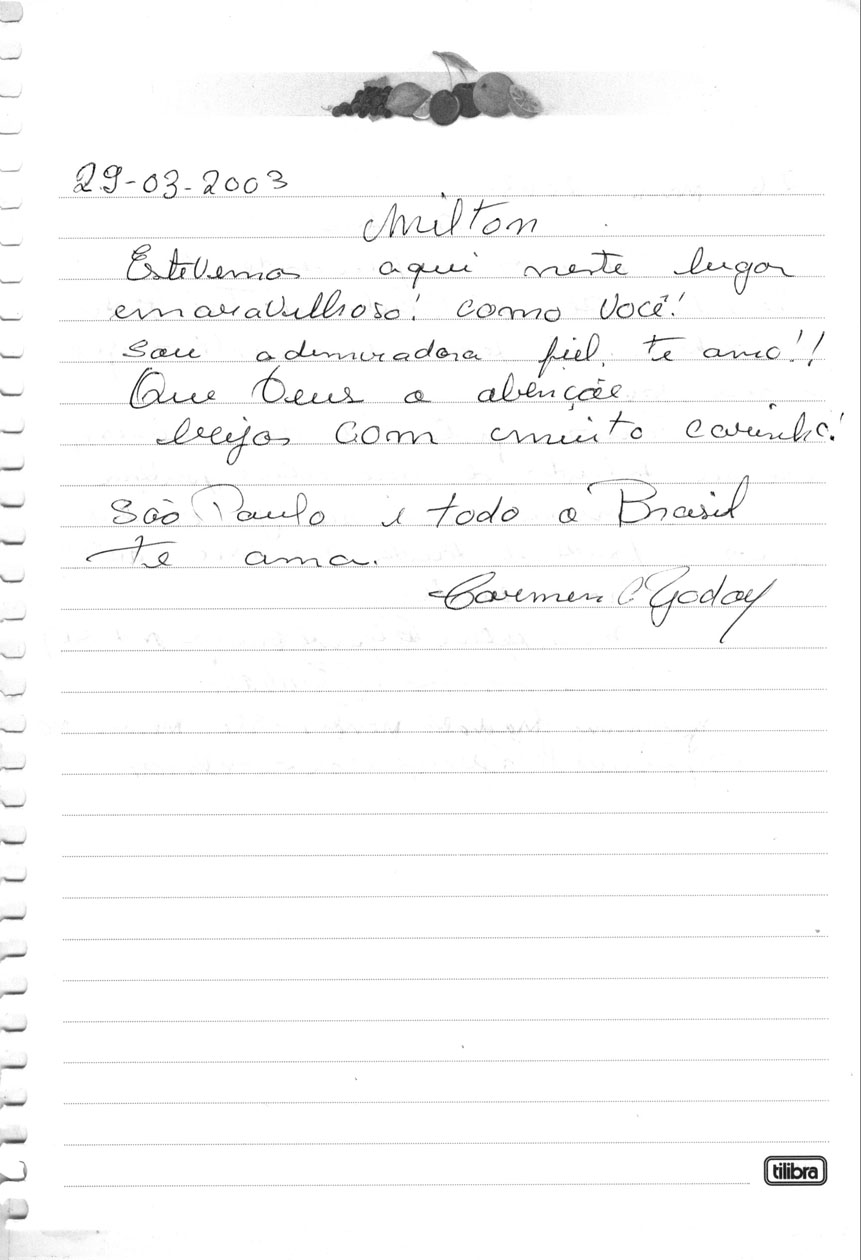 29-03-2003
Milton
Estevemos aqui neste lugar
maravilhoso! como você!
sou admiradora fiel, te amo!!
Que Deus o abençõe
beijos com muito carinho!
São Paulo e todo o Brasil
te ama.
Carmen C Godoy
tilibra